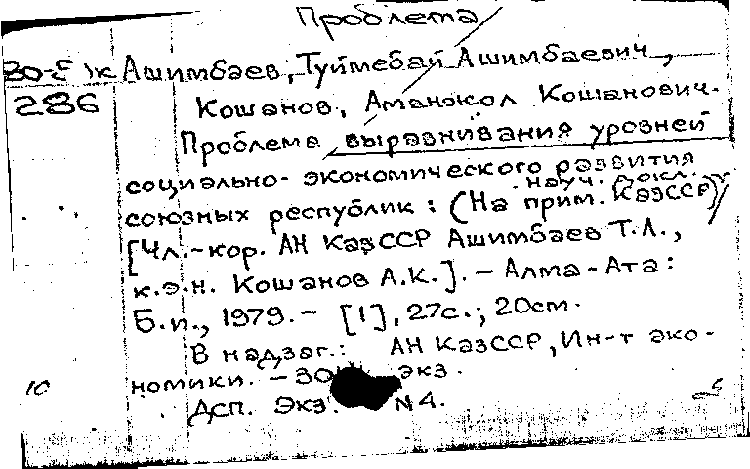 Проблема
80-5 ж Ашимбаев, Туймебай Ашимбаевич,
286 Кошанов, Аманжол Кошанович.
Проблема выравнивания уровней
социально-экономического развития
союзных республик: (На прим. КазССР)
науч. докл.
[Чл.-кор. АН КазССР Ашимбаев Т.А.,
к.э.н. Кошанов А.К.]. - Алма-Ата:
Б.и., 1979. - [1], 27с.; 20см.
В надзаг.: АН КазССР, Ин-т эко-
номики. - 30 экз.
10
ДСП. Экз. N4.